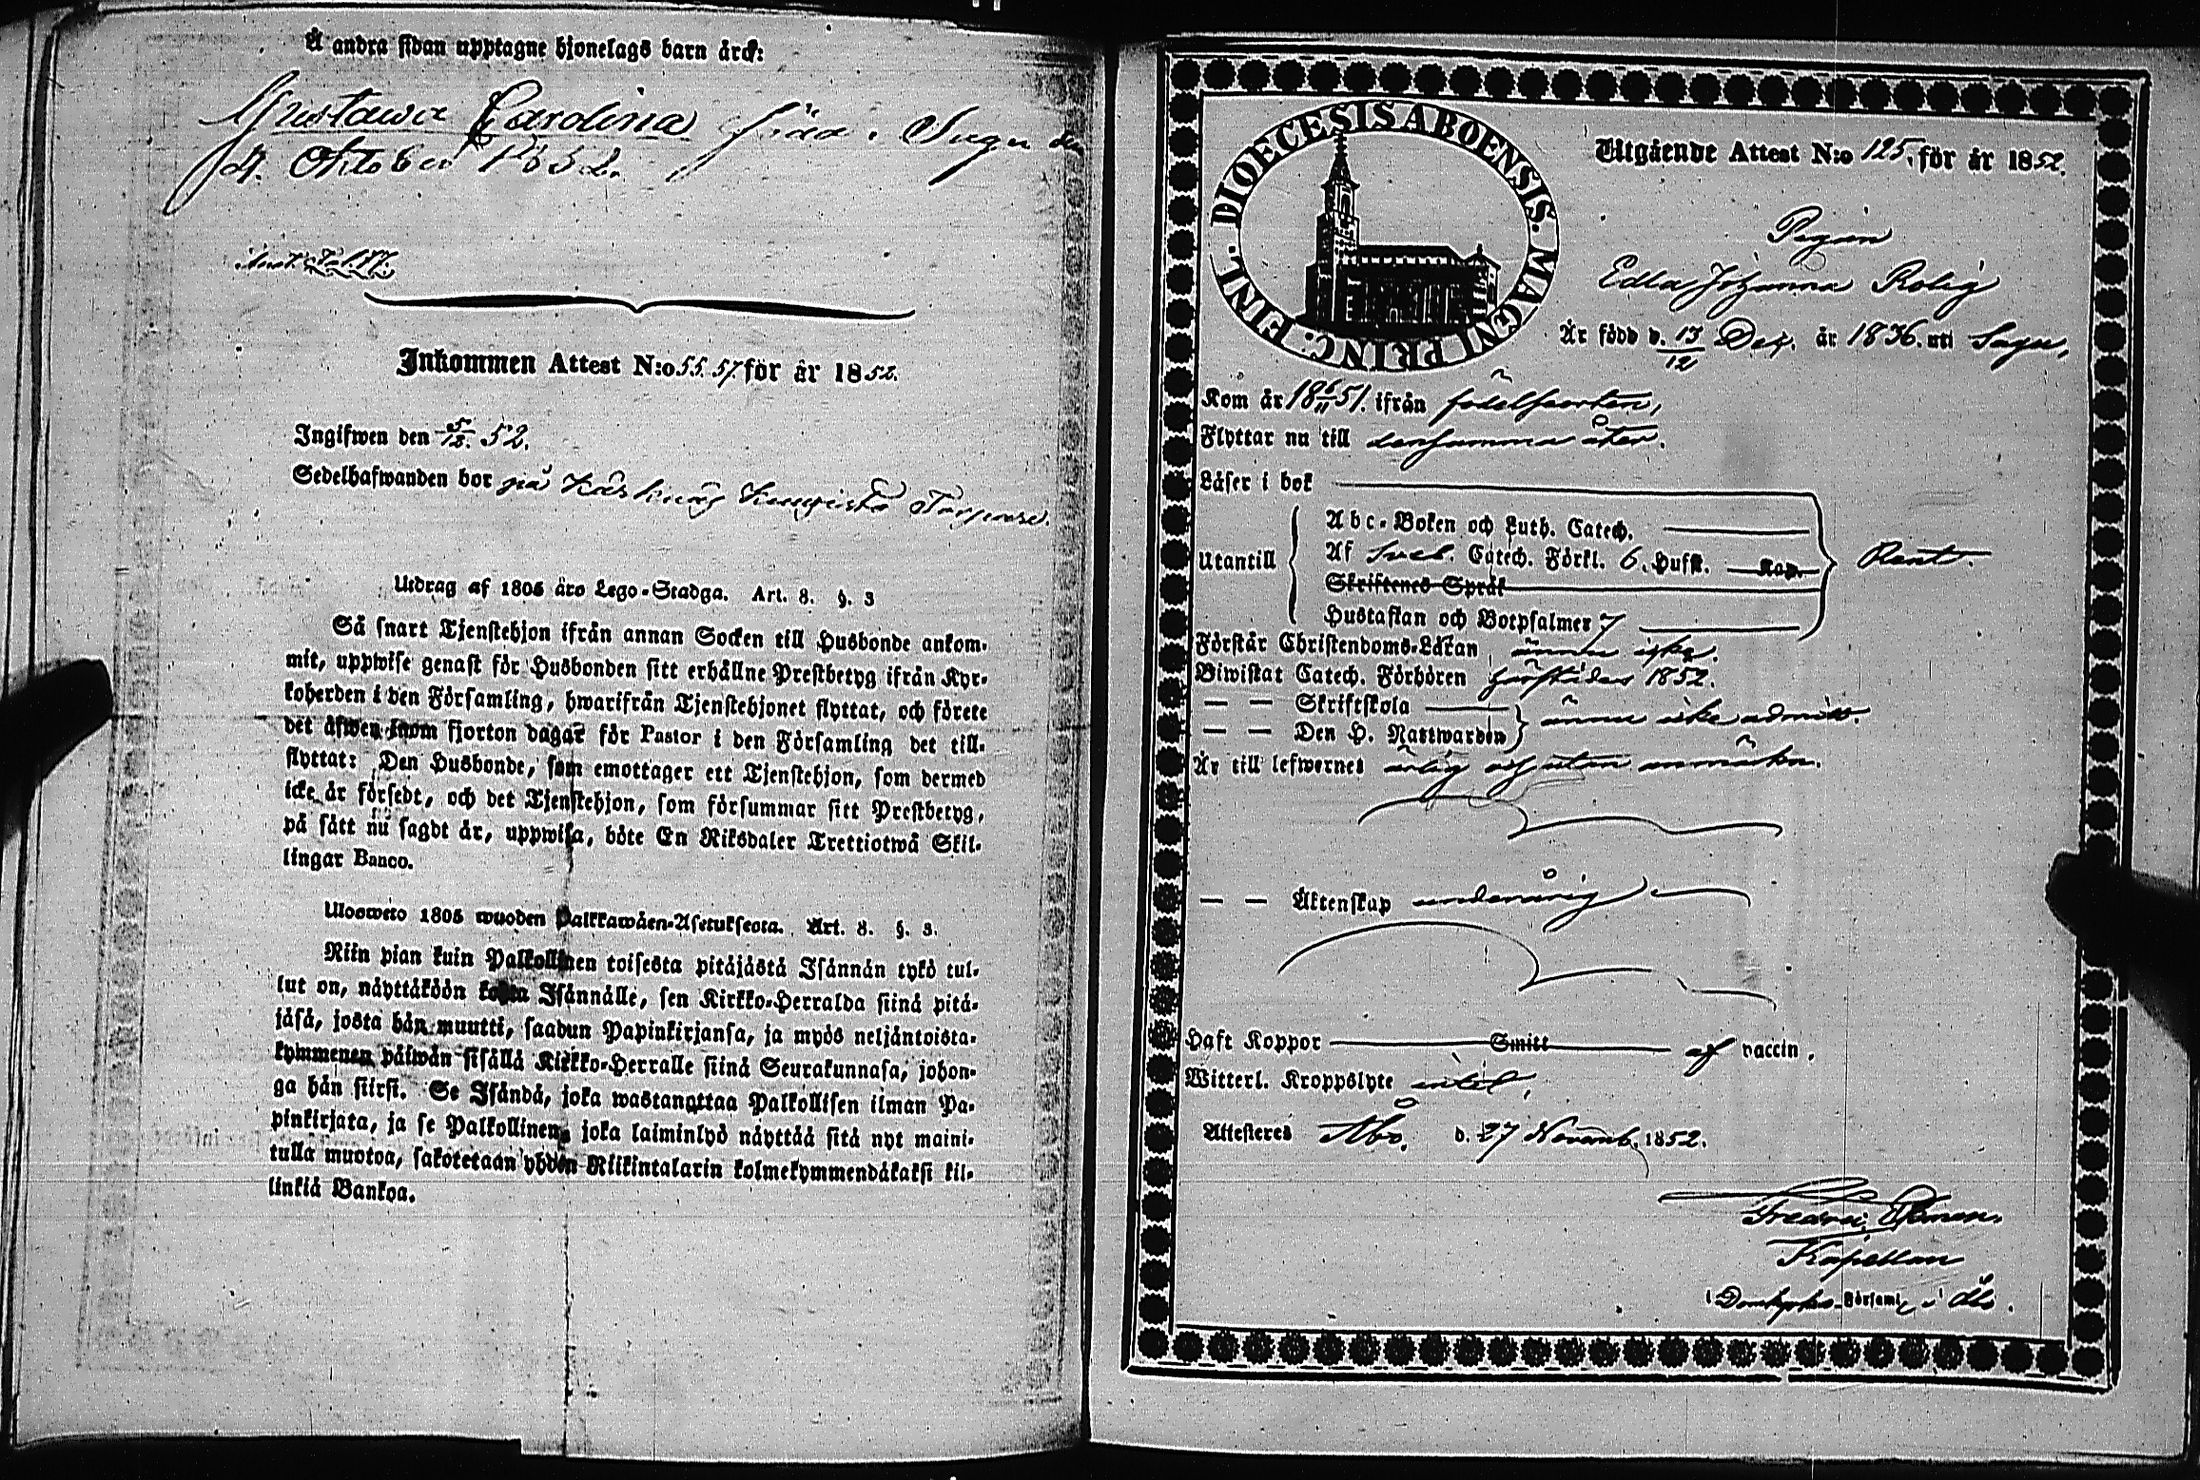 Å andra sidan upptagne hjonelags barn äro:
Gustawa Carolina född i Sagu den
4. Oktober 1852.
Inkommen Attest N:o 55. 57. för år 1852.
Ingifwen den 5/12. 52.
Sedelhafwanden bor på
Utdrag af 1805 års Lego-Stadga. Art. 8. §. 3
Så snart Tjenstehjon ifrån annan Socken till Husbonde ankom-
mit, uppwise genast för Husbonden sitt erhållne Prestbetyg ifrån Kyr-
koherden i den Församling, hwarifrån Tjenstehjonet flyttat, och förete
det äfwen inom fjorton dagar för Pastor i den Församling det till-
flyttat: Den Husbonde, som emottager ett Tjenstehjon, som dermed
icke är försedt, och det Tjenstehjon, som försummar sitt Prestbetyg,
på sätt nu sagdt är, uppwisa, böte En Riksdaler Trettiotwå Skil-
lingar Banco.
Uloswето 1805 wuoden Palkkawäen-Asetuksesta. Art. 8. §. 3.
Niin pian kuin Palkollinen toisesta pitäjästä Isännän tykö tul-
lut on, näyttäköön kohta Isännälle, sen Kirkko-Herralda siinä pitä-
jäsä, josta hän muutti, saadun Papinkirjansa, ja myös neljäntoista-
kymmenen päiwän sisällä Kirkko-Herralle siinä Seurakunnasa, johon-
ga hän siirsi. Se Isändä, joka wastanottaa Palkollisen ilman Pa-
pinkirjata, ja se Palkollinen, joka laiminlyö näyttää sitä nyt maini-
tulla muotoa, sakotetaan yhden Riikintalarin kolmekymmendäkaksi kil-
linkiä Bankoa.
DIOECESIS ABOENSIS. MAGNI PRINC: FINL.
Utgående Attest N:o 125. för år 1852.
Pigan
Edla Johanna Rolig
Är född d. 13/12 Dec. år 1836. uti Sagu,
Kom år 18 6/11 51. ifrån födelseorten,
Flyttar nu till densamma åter.
Läser i bok
Utantill
Abc-Boken och Luth. Catech.
Af Sveb. Catech. Förkl. 6. Hufst. Kap.
Skriftenes Språk
Hustaflan och Botpsalmer 7
Förstår Christendoms-Läran ännu icke.
Biwistat Catech. Förhören 1852.
— — Skriftskola
— — Den H. Nattwarden
ännu icke admitt.
Är till lefwernet ärlig och utan anmärkn.
— — Äktenskap underårig
Haft Koppor Smitt af vaccin.
Witterl. Kroppslyte intet.
Attesteres Åbo. d. 27 Novemb. 1852.
Kapellan
i Domkyrko-Församl. i Åbo.